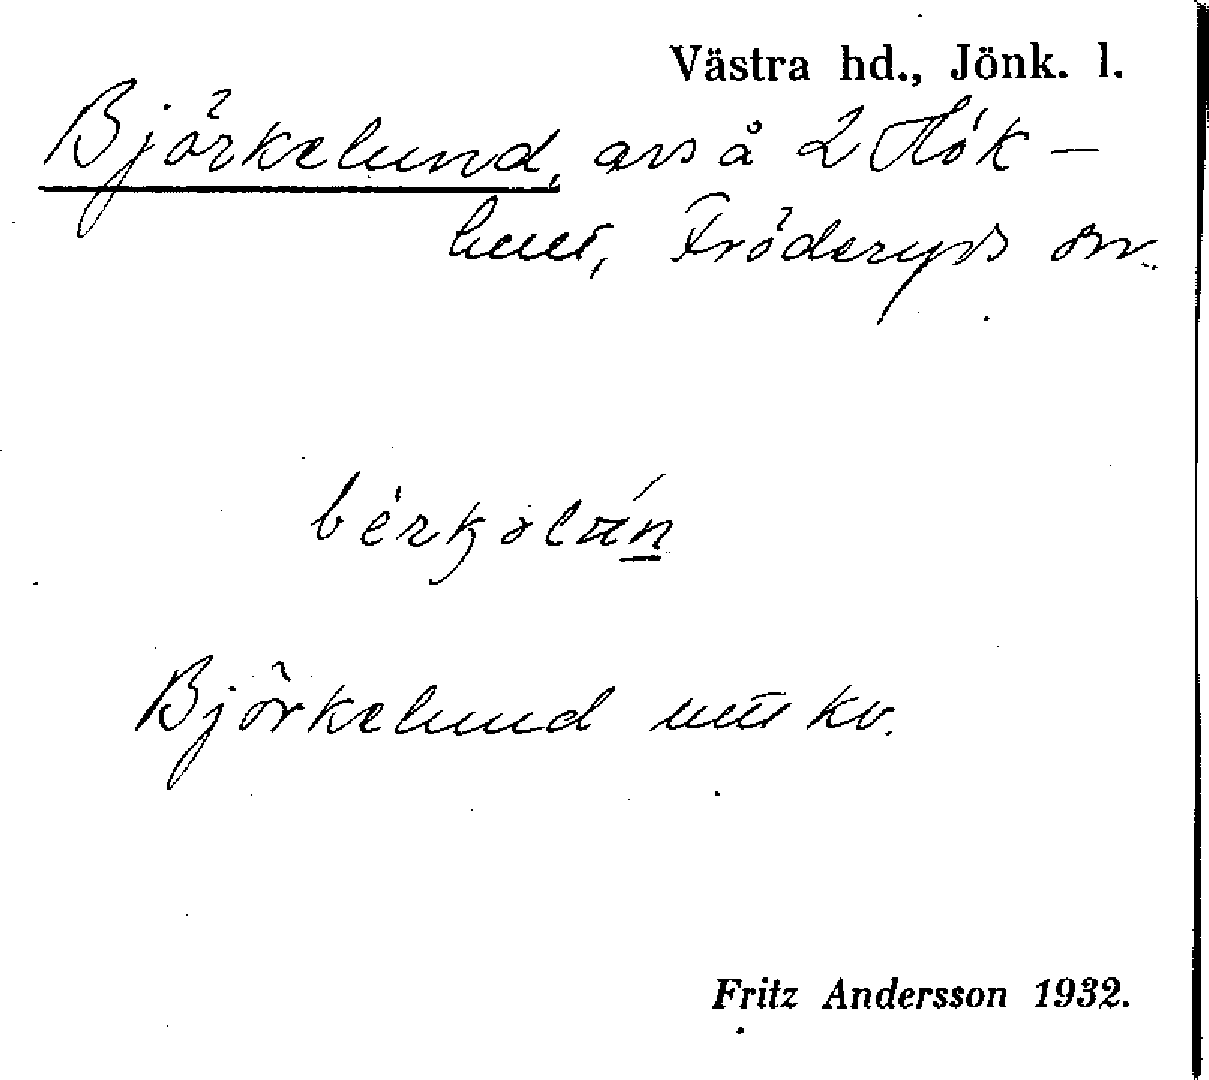 Västra hd., Jönk. l.
Björkelund, avs å 2 Hök-
hult, Fröderyds sn.
Björkelund utt kv.
Fritz Andersson 1932.